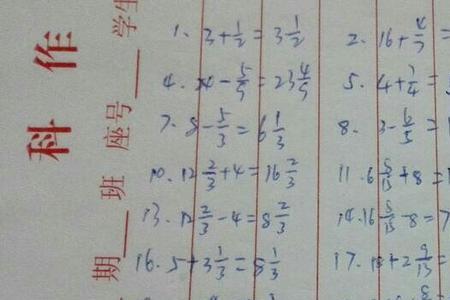 作
科
学生
座号
班
期
1. 3+1/2=3 1/2
2. 16+4/7=
4. 24-5/9=23 4/9
5. 4+1/4=
7. 8-5/3=6 1/3
8. 3-6/5=1
10. 12 2/3+4=16 2/3
11. 6 8/13+8=1
13. 12 2/3-4=8 2/3
14. 16 8/13-8=7
16. 5+3 1/3=8 1/3
17. +2 9/13=